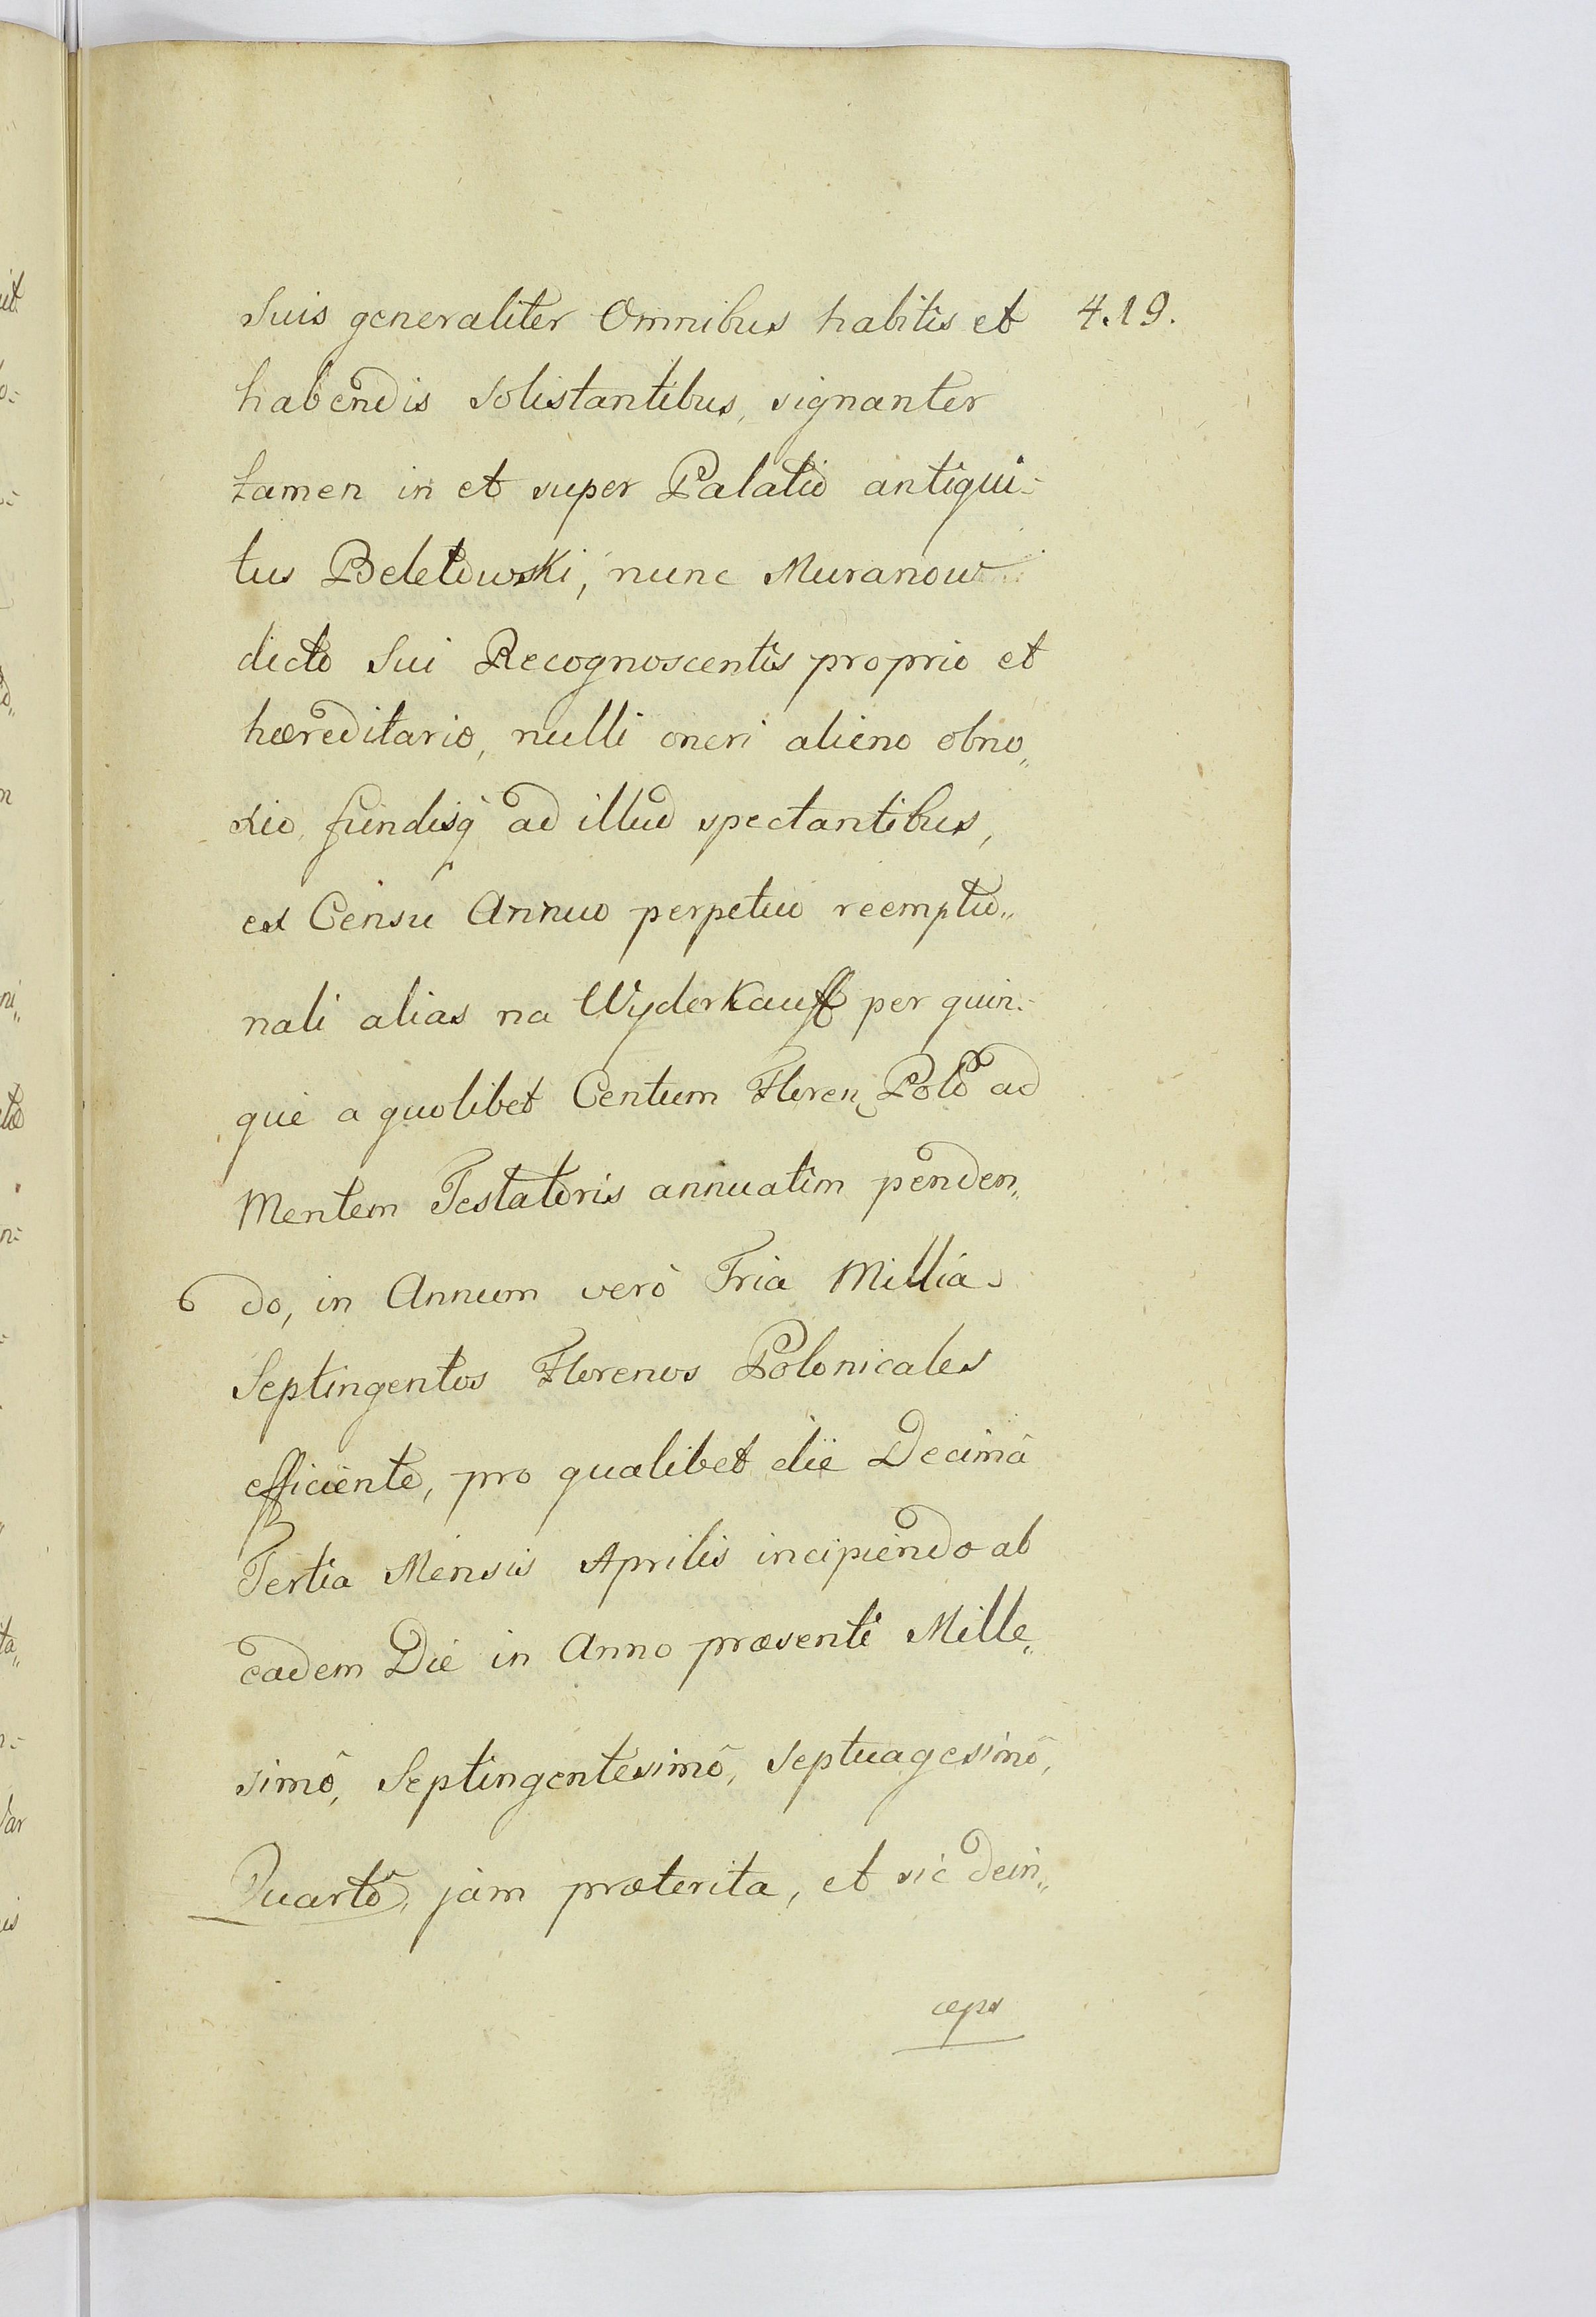 Suis generaliter Omnibus habitis et 4.19.
habendis Solistantibus, signanter
tamen in et super Palatio antiqui=
tus Beletowski, nunc Muranow
dicto Sui Recognoscentis proprio et
hæreditario, nulli oneri alieno obno„
xio, fundisq̃ ad illud spectantibus,
ex Censu Annuo perpetuo reemptio„
nali alias na Wyderkauff per quin=
que a quolibet Centum Floren Polo ad
Mentem Testatoris annuatim penden„
do, in Annum verò Tria Millia
Septingentos Florenos Polonicales
efficiente, pro qualibet die Decimâ
Tertia Mensis Aprilis incipiendo ab
eadem Die in Anno præsenti Mille„
simô, Septingentesimô, Septuagesimô,
Quartô, jam præterita, et sic dein„
ceps